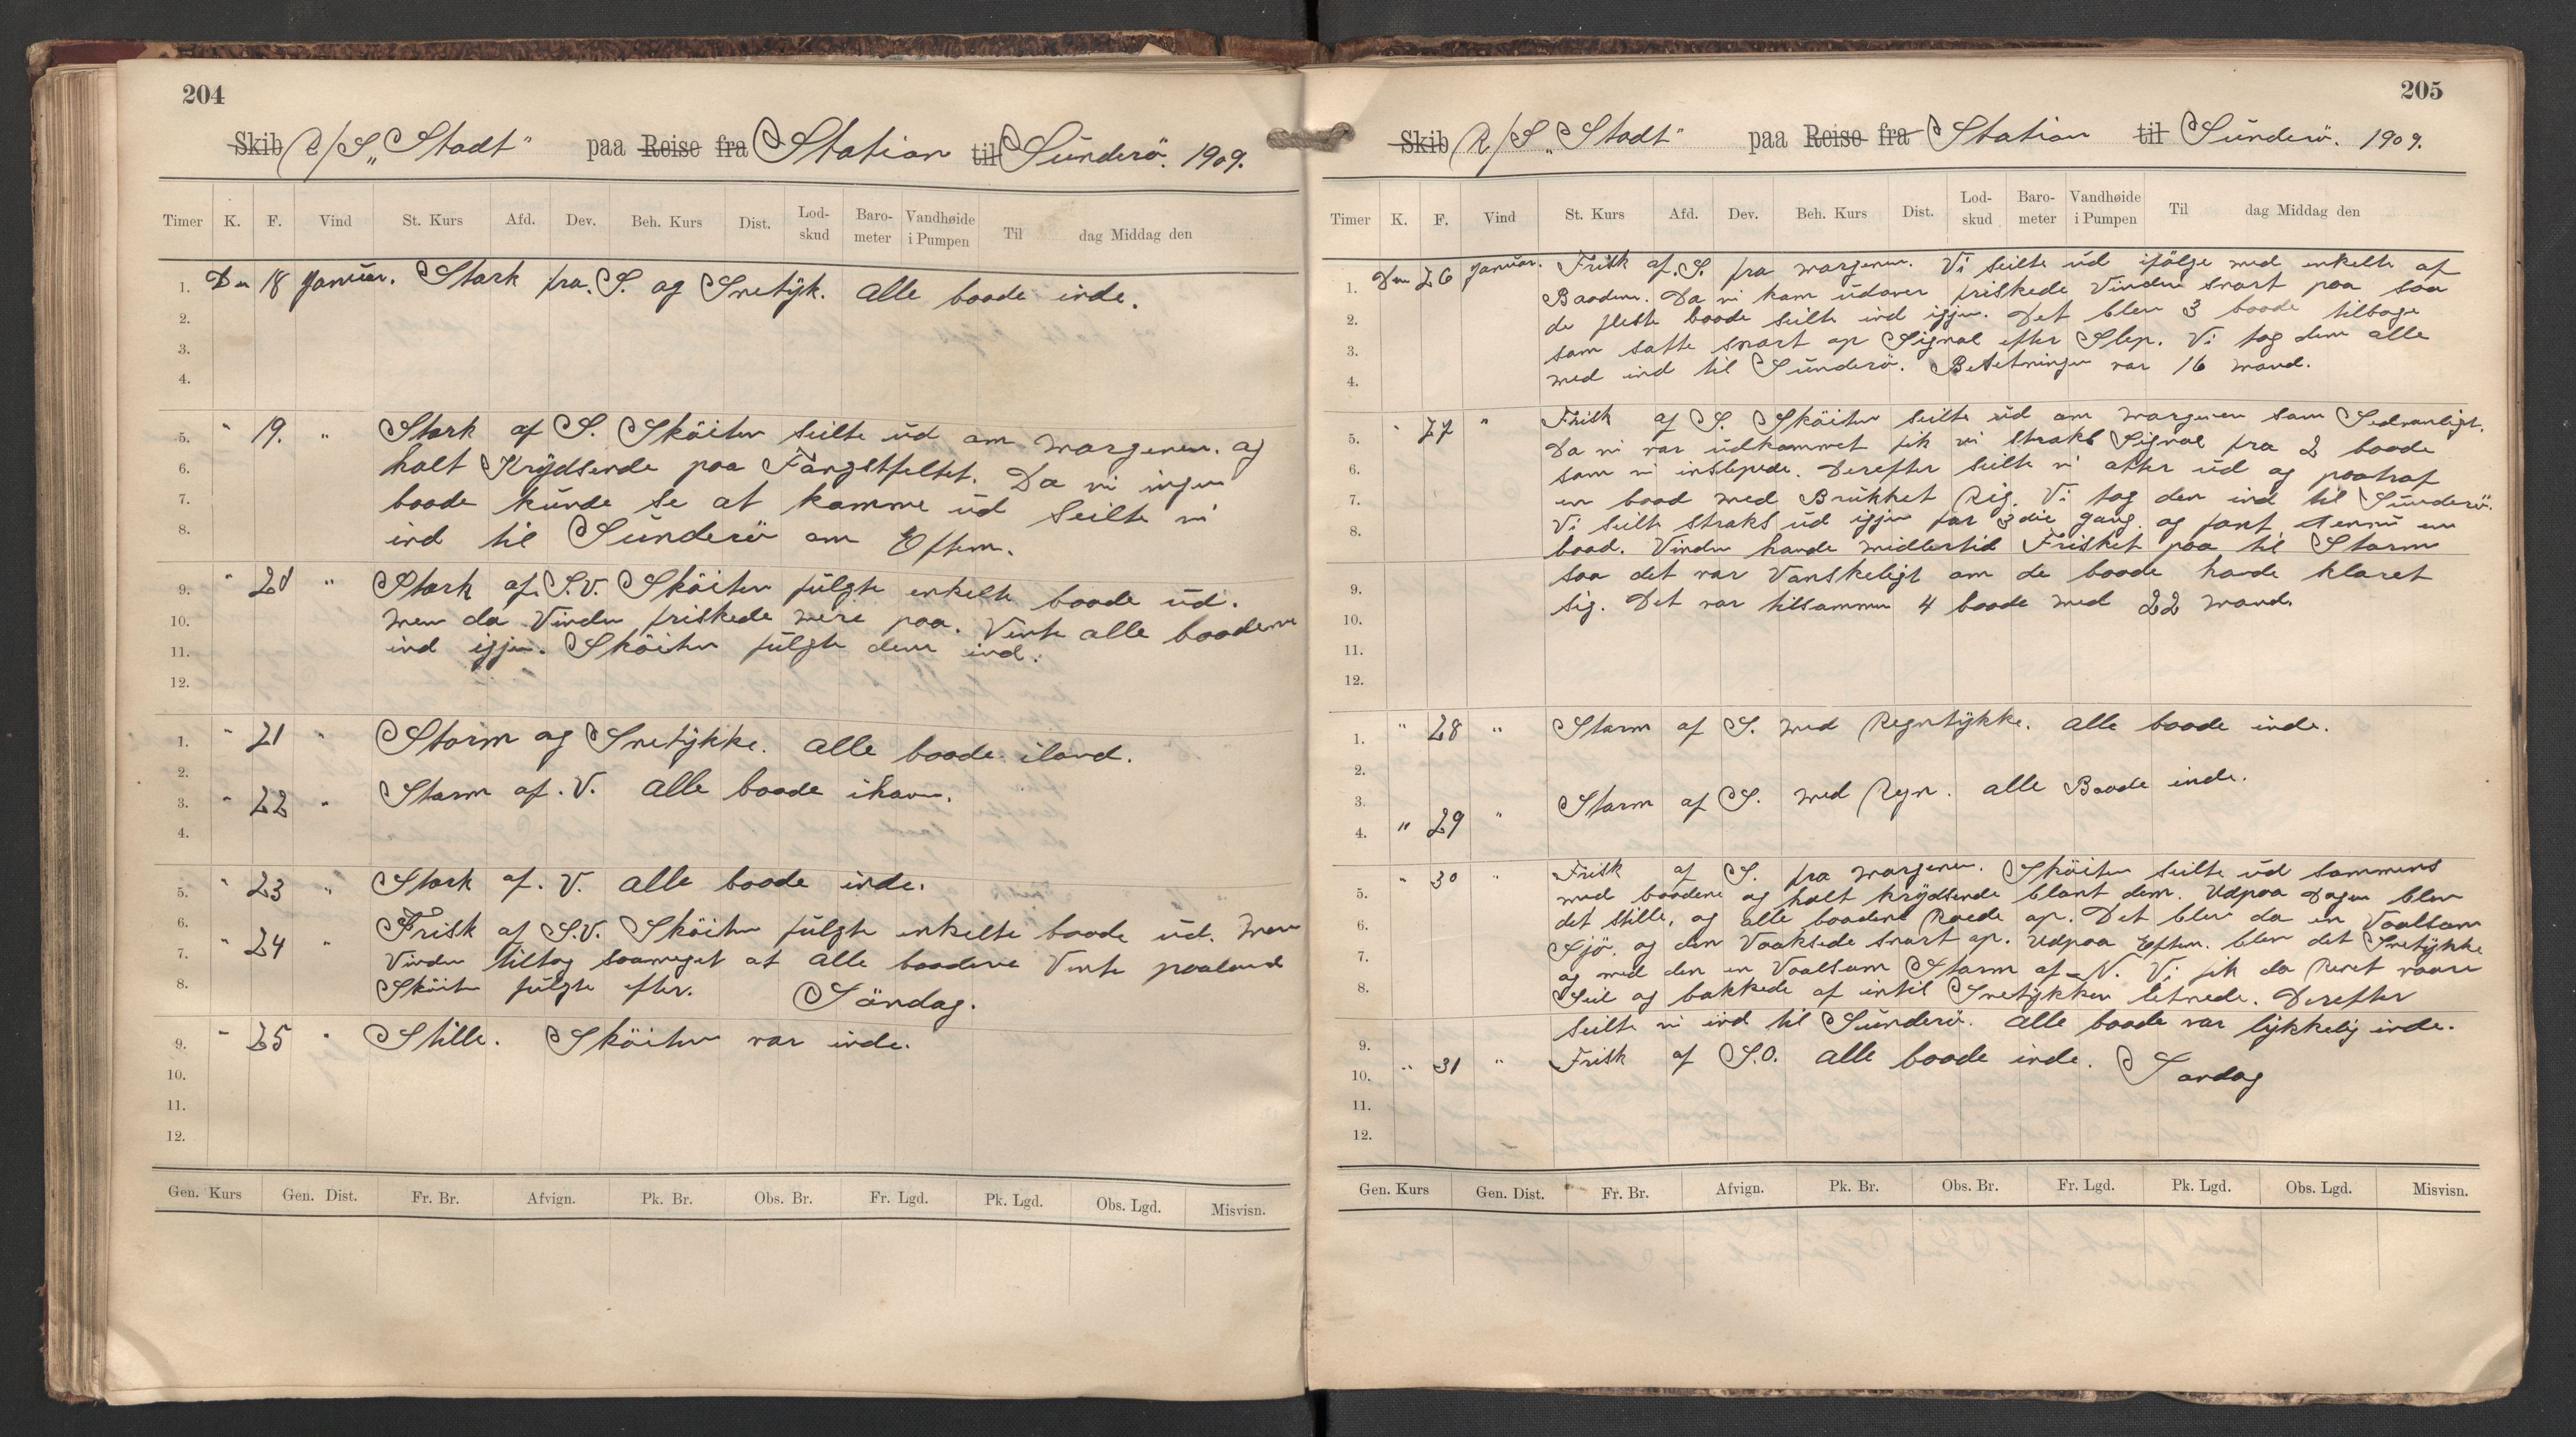 204
Skib R/S „Stadt" paa Reise fra Station til Sünderö. 1909.
Timer K. F. Vind St. Kurs Afd. Dev. Beh. Kurs Dist. Lod-skud Baro-meter Vandhøide i Pumpen Til dag Middag den
1. Den 18 Januar. Stærk fra. S. og Snetÿk. Alle baade inde.
2.
3.
4.
5. " 19. " Stærk af S. Sköiten seilte üd om margenen. og
6. halt Krÿdsende paa Fangstfeltet. Da vi ingen
7. baade künde se at komme üd seilte vi
8. ind til Sünderö om Eftm.
9. " 20 " Stærk af. S.V. Sköiten fülgte enkelte baade üd.
10. men da Vinden friskede mere paa. Vente alle baadene
11. ind igjen. Sköiten fülgte dem ind.
12.
1. " 21 " Storm og Snetÿkke. Alle baade iland.
2.
3. " 22 " Storm af. V. Alle baade ihavn.
4.
5. " 23 " Stærk af. V. Alle baade inde.
6. Frisk af S.V. Sköiten fülgte enkelte baade üd. Men
7. " 24 " Vinden tiltog saameget at alle baadene Vente paaland
8. Sköiten fülgte efter. Söndag.
9. " 25 " Stille. Sköiten var inde.
10.
11.
12.
Gen. Kurs Gen. Dist. Fr. Br. Afvign. Pk. Br. Obs. Br. Fr. Lgd. Pk. Lgd. Obs. Lgd. Misvisn.
205
Skib R/S „Stadt" paa Reise fra Station til Sünderö. 1909.
Timer K. F. Vind St. Kurs Afd. Dev. Beh. Kurs Dist. Lod-skud Baro-meter Vandhøide i Pumpen Til dag Middag den
1. Den 26 Januar. Frisk af. S. fra margenen. Vi seilte üd ifölge med enkelte af
Baadene. Da vi kom üdover friskede Vinden snart paa saa
2. de fleste baade seilte ind igjen. Det blev 3 baade tilbage
3. som satte snart op Signal efter Slep. Vi tog dem alle
4. med ind til Sünderö. Besetningen var 16 mand.
5. " 27 " Frisk af S. Sköiten seilte üd om margenen som Sedvanligt.
Da vi var üdkommet fik vi straks Signal fra 2 baade
6. som vi inslepede. Derefter seilte vi atter üd og paatraf
7. en baad med Brükket Rig. Vi tog den ind til Sünderö.
8. Vi seilte straks üd igjen for 3die gang. og fant ennü en
baad. Vinden havde midlertid Frisket paa til Storm
9. saa det var Vanskeligt om de baade havde klaret
10. sig. Det var tilsammen 4 baade med 22 mand.
11.
12.
1. " 28 " Storm af S. med Regntÿkke. Alle baade inde.
2.
3. Storm af S. med Regn. Alle Baade inde.
4. " 29 "
5. " 30 " Frisk af S. fra margenen. Sköiten seilte üd sammens
med baadene og halt krÿdsende blant dem. Udpaa Dagen blev
6. det stille, og alle baadene Roede op. Det blev da en Voalsom
Sjö. og den Voaksede snart op. Udpaa Eftm. blev det Snetÿkke
7. og med den en Voalsom Storm af N. Vi fik da Revet vaare
8. Seil og bakkede af intil Snetÿkken letnede. Derefter
seilte vi ind til Sünderö. Alle baade var lÿkkelig inde.
9.
10. " 31 " Frisk af S.O. Alle baade inde. Söndag
11.
12.
Gen. Kurs Gen. Dist. Fr. Br. Afvign. Pk. Br. Obs. Br. Fr. Lgd. Pk. Lgd. Obs. Lgd. Misvisn.